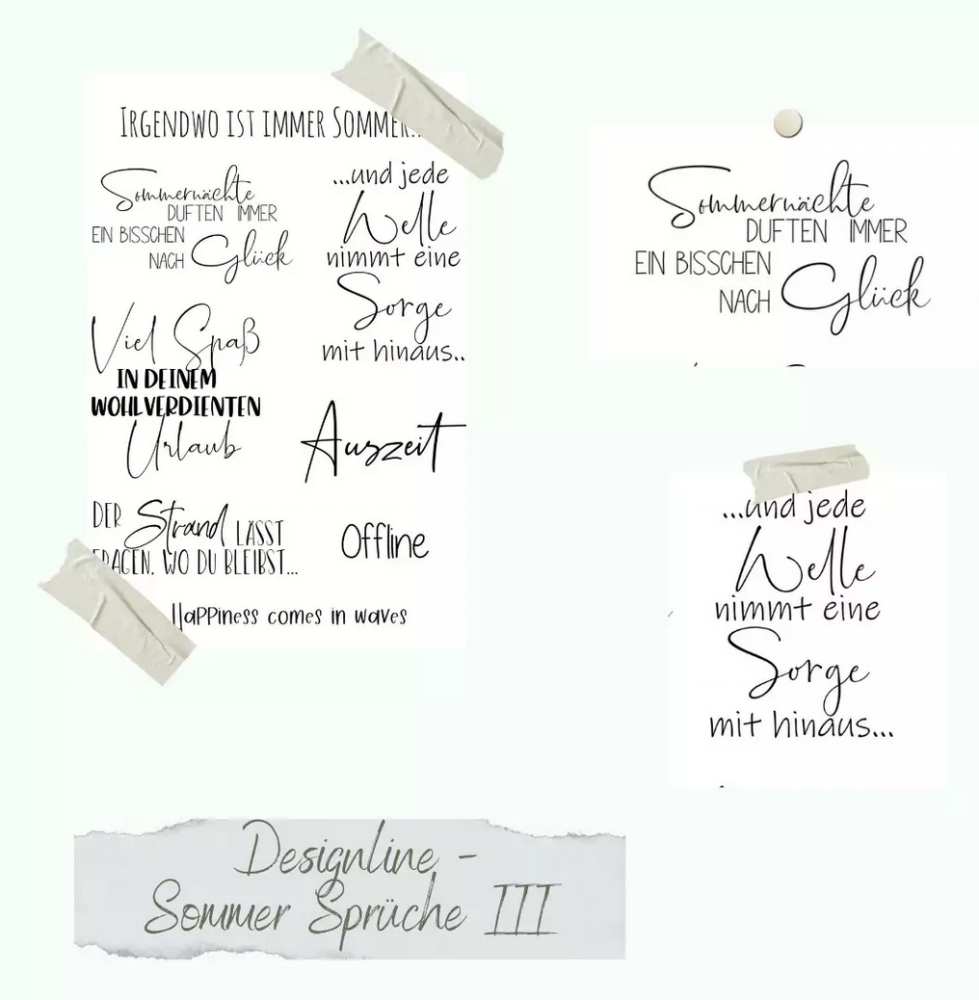 Irgendwo ist immer Sommer..
Sommernächte
duften immer
ein bisschen
nach Glück
...und jede
Welle
nimmt eine
Sorge
mit hinaus..
Viel Spaß
in deinem
wohlverdienten
Urlaub
Auszeit
Der Strand lässt
fragen, wo du bleibst...
Offline
Happiness comes in waves
Sommernächte
duften immer
ein bisschen
nach Glück
...und jede
Welle
nimmt eine
Sorge
mit hinaus...
Designline -
Sommer Sprüche III